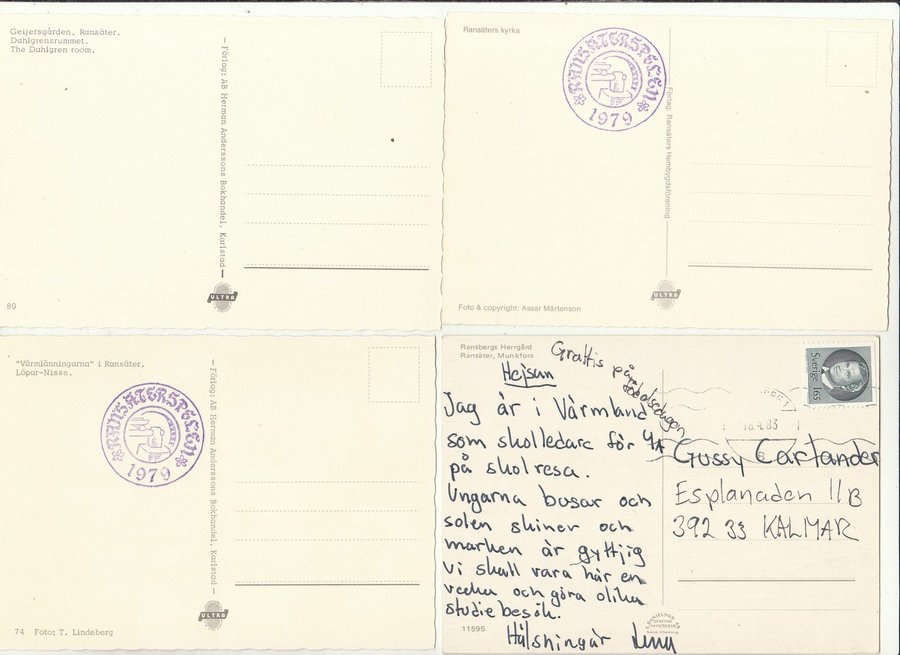 Geijersgården, Ransäter.
Dahlgrensrummet.
The Dahlgren room.
— Förlag: AB Herman Anderssons Bokhandel, Karlstad —
ULTRA
80
Ransäters kyrka
RANSÄTERSPELEN
1979
Förlag: Ransäters Hembygdsförening
Foto & copyright: Assar Mårtenson
ULTRA
"Värmlänningarna" i Ransäter.
Löpar-Nisse.
RANSÄTERSPELEN
1979
— Förlag: AB Herman Anderssons Bokhandel, Karlstad —
ULTRA
74 Foto: T. Lindeberg
Ransbergs Herrgård
Ransäter, Munkfors
Grattis på
födelsedagen
Hejsan
Jag är i Värmland
som skolledare för 4A
på skolresa.
Ungarna busar och
solen skiner och
marken är gyttjig
vi skall vara här en
vecka och göra olika
studiebesök.
Hälsningar Lena
11595
Sverige 165
83
Gussy Cartander
Esplanaden 11B
392 33 KALMAR